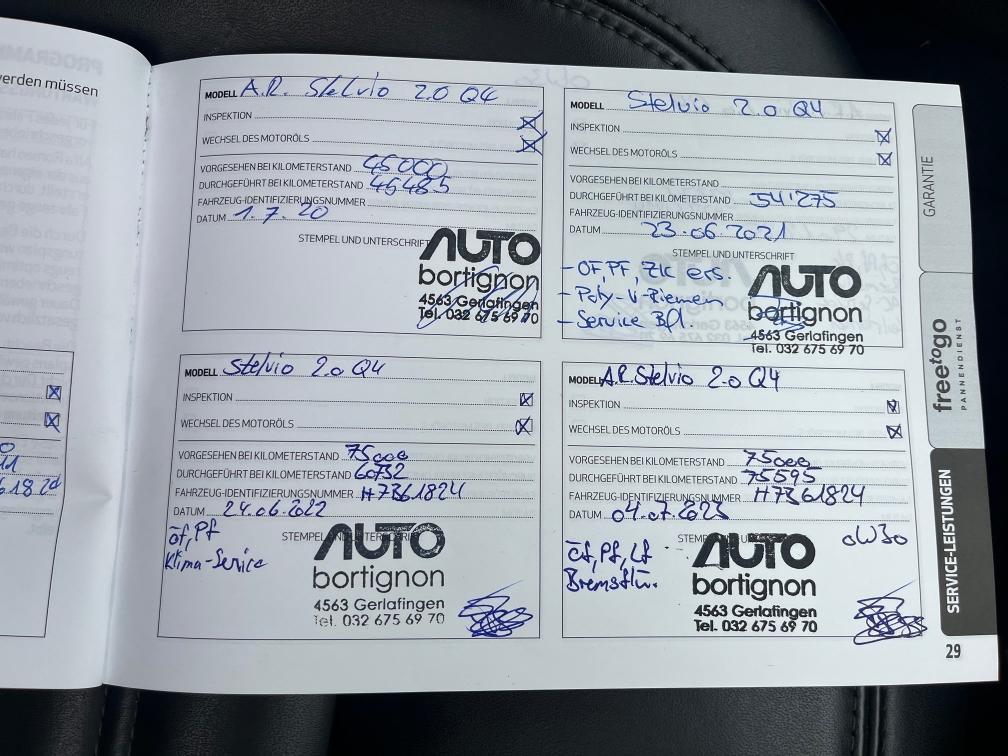 erden müssen
MODELL A.R. Stelvio 2.0 Q4
INSPEKTION
WECHSEL DES MOTORÖLS
VORGESEHEN BEI KILOMETERSTAND 45000
DURCHGEFÜHRT BEI KILOMETERSTAND 46485
FAHRZEUG-IDENTIFIZIERUNGSNUMMER
DATUM 1.7.20
STEMPEL UND UNTERSCHRIFT
AUTO
bortignon
4563 Gerlafingen
Tel. 032 675 69 70
MODELL Stelvio 2.0 Q4
INSPEKTION
WECHSEL DES MOTORÖLS
VORGESEHEN BEI KILOMETERSTAND
DURCHGEFÜHRT BEI KILOMETERSTAND 54'275
FAHRZEUG-IDENTIFIZIERUNGSNUMMER
DATUM 23.06.2021
STEMPEL UND UNTERSCHRIFT
- ÖF, PF, ZK ers.
- Poly-V-Riemen
- Service Bfl.
AUTO
bortignon
4563 Gerlafingen
Tel. 032 675 69 70
MODELL Stelvio 2.0 Q4
INSPEKTION
WECHSEL DES MOTORÖLS
VORGESEHEN BEI KILOMETERSTAND 75000
DURCHGEFÜHRT BEI KILOMETERSTAND 60732
FAHRZEUG-IDENTIFIZIERUNGSNUMMER H7361824
DATUM 24.06.2022
öf, Pf
Klima-Service
AUTO
bortignon
4563 Gerlafingen
Tel. 032 675 69 70
MODELL A.R. Stelvio 2.0 Q4
INSPEKTION
WECHSEL DES MOTORÖLS
VORGESEHEN BEI KILOMETERSTAND 75000
DURCHGEFÜHRT BEI KILOMETERSTAND 75595
FAHRZEUG-IDENTIFIZIERUNGSNUMMER H7361824
DATUM 04.07.2023
0W30
öf, Pf, Lf
Bremsflü.
AUTO
bortignon
4563 Gerlafingen
Tel. 032 675 69 70
GARANTIE
freetogo
PANNENDIENST
SERVICE-LEISTUNGEN
29